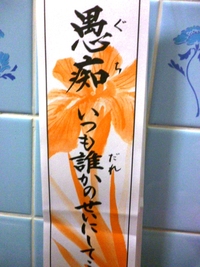 愚痴
ぐち
いつも誰かのせいにして
だれ